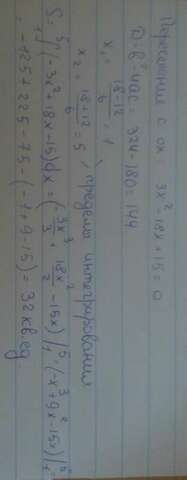 Пересечение с ох 3x²-18x+15=0
D=b²-4ac=324-180=144
x₁=(18-12)/6=1
x₂=(18+12)/6=5, пределы интегрирования
S=∫₁⁵(-3x²+18x-15)dx=(-3x³/3+18x²/2-15x)|₁⁵=(-x³+9x²-15x)|₁⁵
=-125+225-75-(-1+9-15)=32кв ед